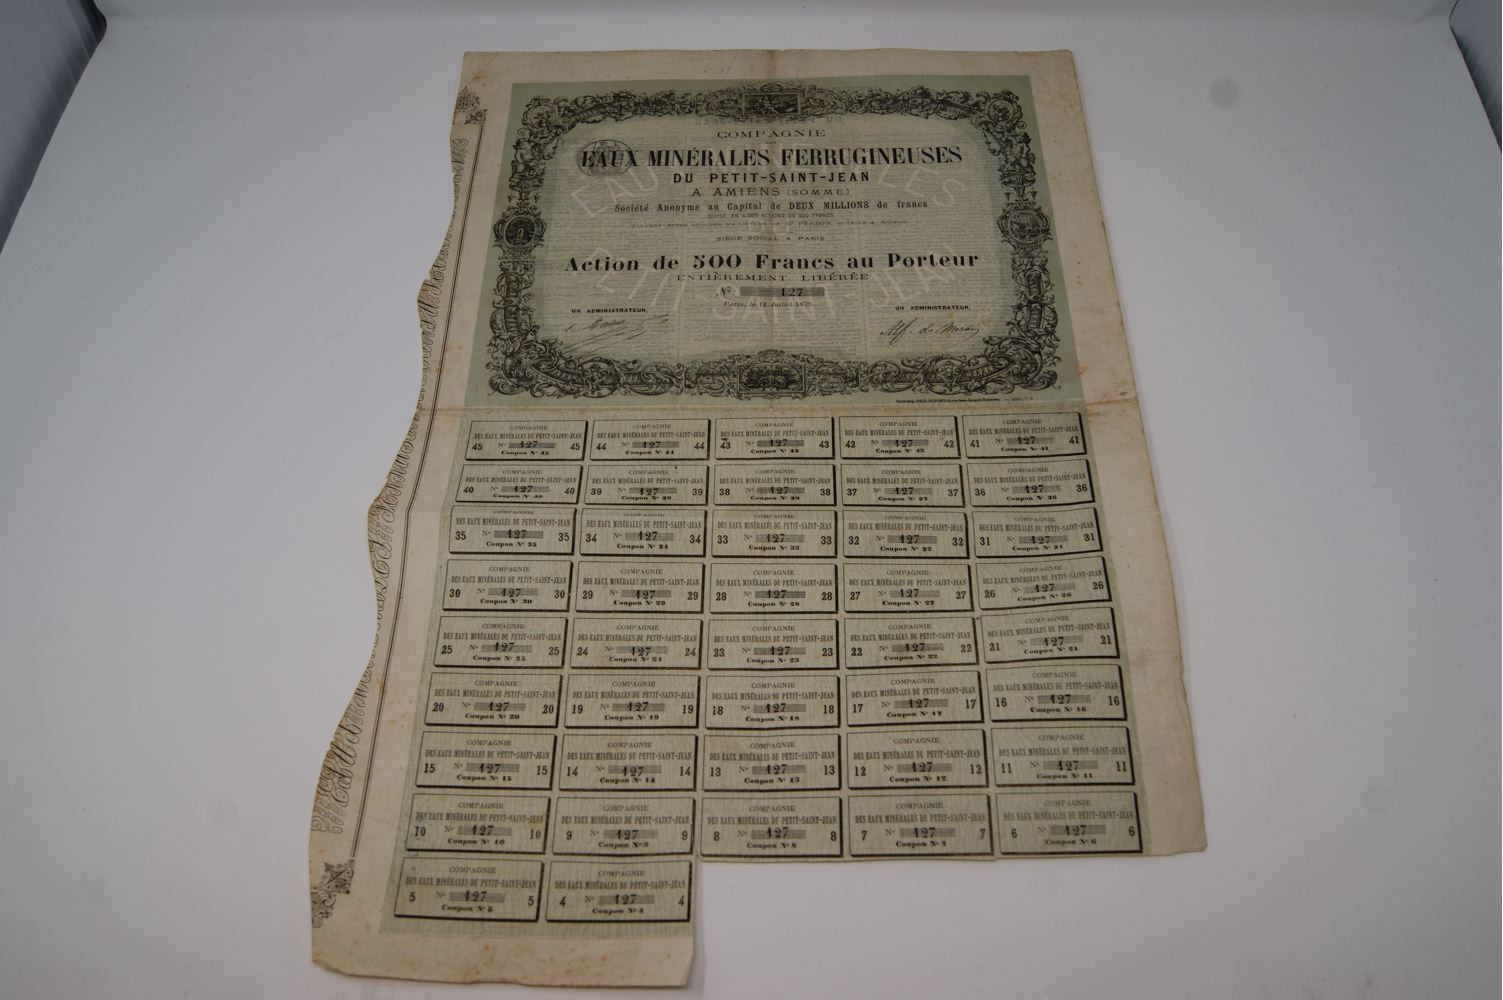 COMPAGNIE
EAUX MINÉRALES FERRUGINEUSES
DU PETIT-SAINT-JEAN
A AMIENS (SOMME)
Société Anonyme au Capital de DEUX MILLIONS de francs
DIVISÉ EN 4.000 ACTIONS DE 500 FRANCS
SIÈGE SOCIAL A PARIS
Action de 500 Francs au Porteur
ENTIÈREMENT LIBÉRÉE
No 127
Paris, le 12 Juillet 1879.
UN ADMINISTRATEUR, UN ADMINISTRATEUR,
EAUX MINÉRALES
PETIT-SAINT-JEAN
COMPAGNIE COMPAGNIE COMPAGNIE COMPAGNIE COMPAGNIE
DES EAUX MINÉRALES DU PETIT-SAINT-JEAN DES EAUX MINÉRALES DU PETIT-SAINT-JEAN DES EAUX MINÉRALES DU PETIT-SAINT-JEAN DES EAUX MINÉRALES DU PETIT-SAINT-JEAN DES EAUX MINÉRALES DU PETIT-SAINT-JEAN
45 No 127 45 44 No 127 44 43 No 127 43 42 No 127 42 41 No 127 41
Coupon No 45 Coupon No 44 Coupon No 43 Coupon No 42 Coupon No 41
COMPAGNIE COMPAGNIE COMPAGNIE COMPAGNIE COMPAGNIE
DES EAUX MINÉRALES DU PETIT-SAINT-JEAN DES EAUX MINÉRALES DU PETIT-SAINT-JEAN DES EAUX MINÉRALES DU PETIT-SAINT-JEAN DES EAUX MINÉRALES DU PETIT-SAINT-JEAN DES EAUX MINÉRALES DU PETIT-SAINT-JEAN
40 No 127 40 39 No 127 39 38 No 127 38 37 No 127 37 36 No 127 36
Coupon No 40 Coupon No 39 Coupon No 38 Coupon No 37 Coupon No 36
COMPAGNIE COMPAGNIE COMPAGNIE COMPAGNIE COMPAGNIE
DES EAUX MINÉRALES DU PETIT-SAINT-JEAN DES EAUX MINÉRALES DU PETIT-SAINT-JEAN DES EAUX MINÉRALES DU PETIT-SAINT-JEAN DES EAUX MINÉRALES DU PETIT-SAINT-JEAN DES EAUX MINÉRALES DU PETIT-SAINT-JEAN
35 No 127 35 34 No 127 34 33 No 127 33 32 No 127 32 31 No 127 31
Coupon No 35 Coupon No 34 Coupon No 33 Coupon No 32 Coupon No 31
COMPAGNIE COMPAGNIE COMPAGNIE COMPAGNIE COMPAGNIE
DES EAUX MINÉRALES DU PETIT-SAINT-JEAN DES EAUX MINÉRALES DU PETIT-SAINT-JEAN DES EAUX MINÉRALES DU PETIT-SAINT-JEAN DES EAUX MINÉRALES DU PETIT-SAINT-JEAN DES EAUX MINÉRALES DU PETIT-SAINT-JEAN
30 No 127 30 29 No 127 29 28 No 127 28 27 No 127 27 26 No 127 26
Coupon No 30 Coupon No 29 Coupon No 28 Coupon No 27 Coupon No 26
COMPAGNIE COMPAGNIE COMPAGNIE COMPAGNIE COMPAGNIE
DES EAUX MINÉRALES DU PETIT-SAINT-JEAN DES EAUX MINÉRALES DU PETIT-SAINT-JEAN DES EAUX MINÉRALES DU PETIT-SAINT-JEAN DES EAUX MINÉRALES DU PETIT-SAINT-JEAN DES EAUX MINÉRALES DU PETIT-SAINT-JEAN
25 No 127 25 24 No 127 24 23 No 127 23 22 No 127 22 21 No 127 21
Coupon No 25 Coupon No 24 Coupon No 23 Coupon No 22 Coupon No 21
COMPAGNIE COMPAGNIE COMPAGNIE COMPAGNIE COMPAGNIE
DES EAUX MINÉRALES DU PETIT-SAINT-JEAN DES EAUX MINÉRALES DU PETIT-SAINT-JEAN DES EAUX MINÉRALES DU PETIT-SAINT-JEAN DES EAUX MINÉRALES DU PETIT-SAINT-JEAN DES EAUX MINÉRALES DU PETIT-SAINT-JEAN
20 No 127 20 19 No 127 19 18 No 127 18 17 No 127 17 16 No 127 16
Coupon No 20 Coupon No 19 Coupon No 18 Coupon No 17 Coupon No 16
COMPAGNIE COMPAGNIE COMPAGNIE COMPAGNIE COMPAGNIE
DES EAUX MINÉRALES DU PETIT-SAINT-JEAN DES EAUX MINÉRALES DU PETIT-SAINT-JEAN DES EAUX MINÉRALES DU PETIT-SAINT-JEAN DES EAUX MINÉRALES DU PETIT-SAINT-JEAN DES EAUX MINÉRALES DU PETIT-SAINT-JEAN
15 No 127 15 14 No 127 14 13 No 127 13 12 No 127 12 11 No 127 11
Coupon No 15 Coupon No 14 Coupon No 13 Coupon No 12 Coupon No 11
COMPAGNIE COMPAGNIE COMPAGNIE COMPAGNIE COMPAGNIE
DES EAUX MINÉRALES DU PETIT-SAINT-JEAN DES EAUX MINÉRALES DU PETIT-SAINT-JEAN DES EAUX MINÉRALES DU PETIT-SAINT-JEAN DES EAUX MINÉRALES DU PETIT-SAINT-JEAN DES EAUX MINÉRALES DU PETIT-SAINT-JEAN
10 No 127 10 9 No 127 9 8 No 127 8 7 No 127 7 6 No 127 6
Coupon No 10 Coupon No 9 Coupon No 8 Coupon No 7 Coupon No 6
COMPAGNIE COMPAGNIE
DES EAUX MINÉRALES DU PETIT-SAINT-JEAN DES EAUX MINÉRALES DU PETIT-SAINT-JEAN
5 No 127 5 4 No 127 4
Coupon No 5 Coupon No 4